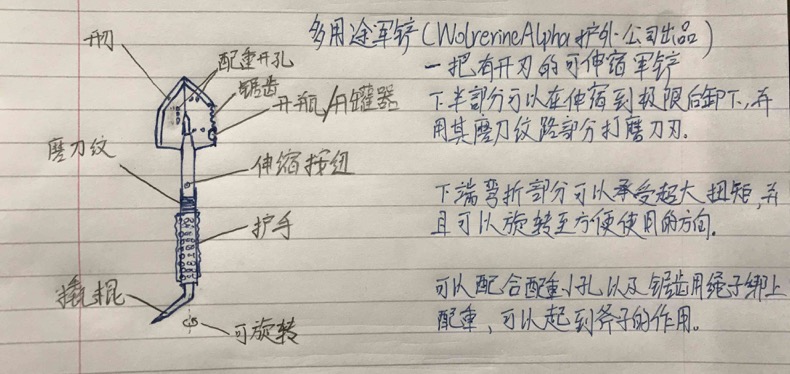 多用途军铲(WolverineAlpha户外公司出品)
一把有开刃的可伸缩军铲
下半部分可以在伸缩到极限后卸下,并
用其磨刀纹路部分打磨刀刃.
下端弯折部分可以承受超大扭矩,并
且可以旋转至方便使用的方向.
可以配合配重小孔以及锯齿用绳子绑上
配重,可以起到斧子的作用。
开刃
配重开孔
锯齿
开瓶/开罐器
磨刀纹
伸缩按钮
护手
撬棍
可旋转